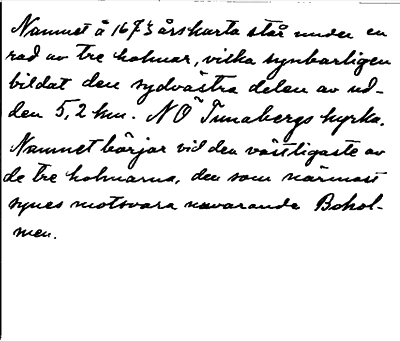 Namnet å 1673 årskarta står under en
rad av tre holmar, vilka synbarligen
bildat den sydvästra delen av ud-
den 5,2 km. NO Tunabergs kyrka.
Namnet börjar vid den västligaste av
de tre holmarna, den som närmast
synes motsvara nuvarande Bohol-
men.